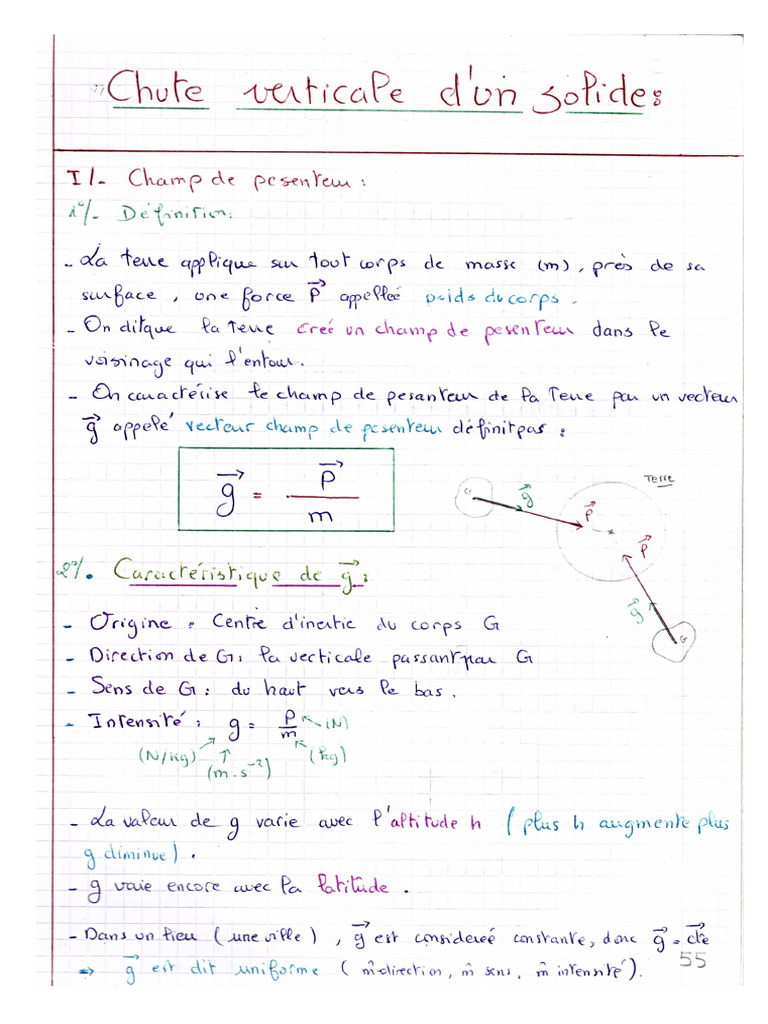 Chute verticale d'un solide:
I/- Champ de pesenteur:
1°/- Définition:
- La terre applique sur tout corps de masse (m), près de sa
surface, une force P⃗ appelleé poids du corps.
- On dit que la Terre creé un champ de pesenteur dans le
voisinage qui l'entour.
- On caractérise le champ de pesanteur de la Terre par un vecteur
g⃗ appelé vecteur champ de pesenteur définit par :
g⃗ = P⃗ / m
Terre
G g⃗ P⃗
P⃗
g⃗ G
2°/. Caractéristique de g⃗ :
- Origine : Centre d'inertie du corps G
- Direction de G: la verticale passant par G
- Sens de G : du haut vers le bas.
- Intensité : g = P/m (N)
(N/kg) (m.s⁻²) (kg)
- La valeur de g varie avec l'altitude h (plus h augmente plus
g diminue).
- g vaie encore avec la latitude.
- Dans un lieu (une ville), g⃗ est considereé constante, donc g⃗ = cte⃗
⇒ g⃗ est dit uniforme (m̂ direction, m̂ sens, m̂ intensité).
55